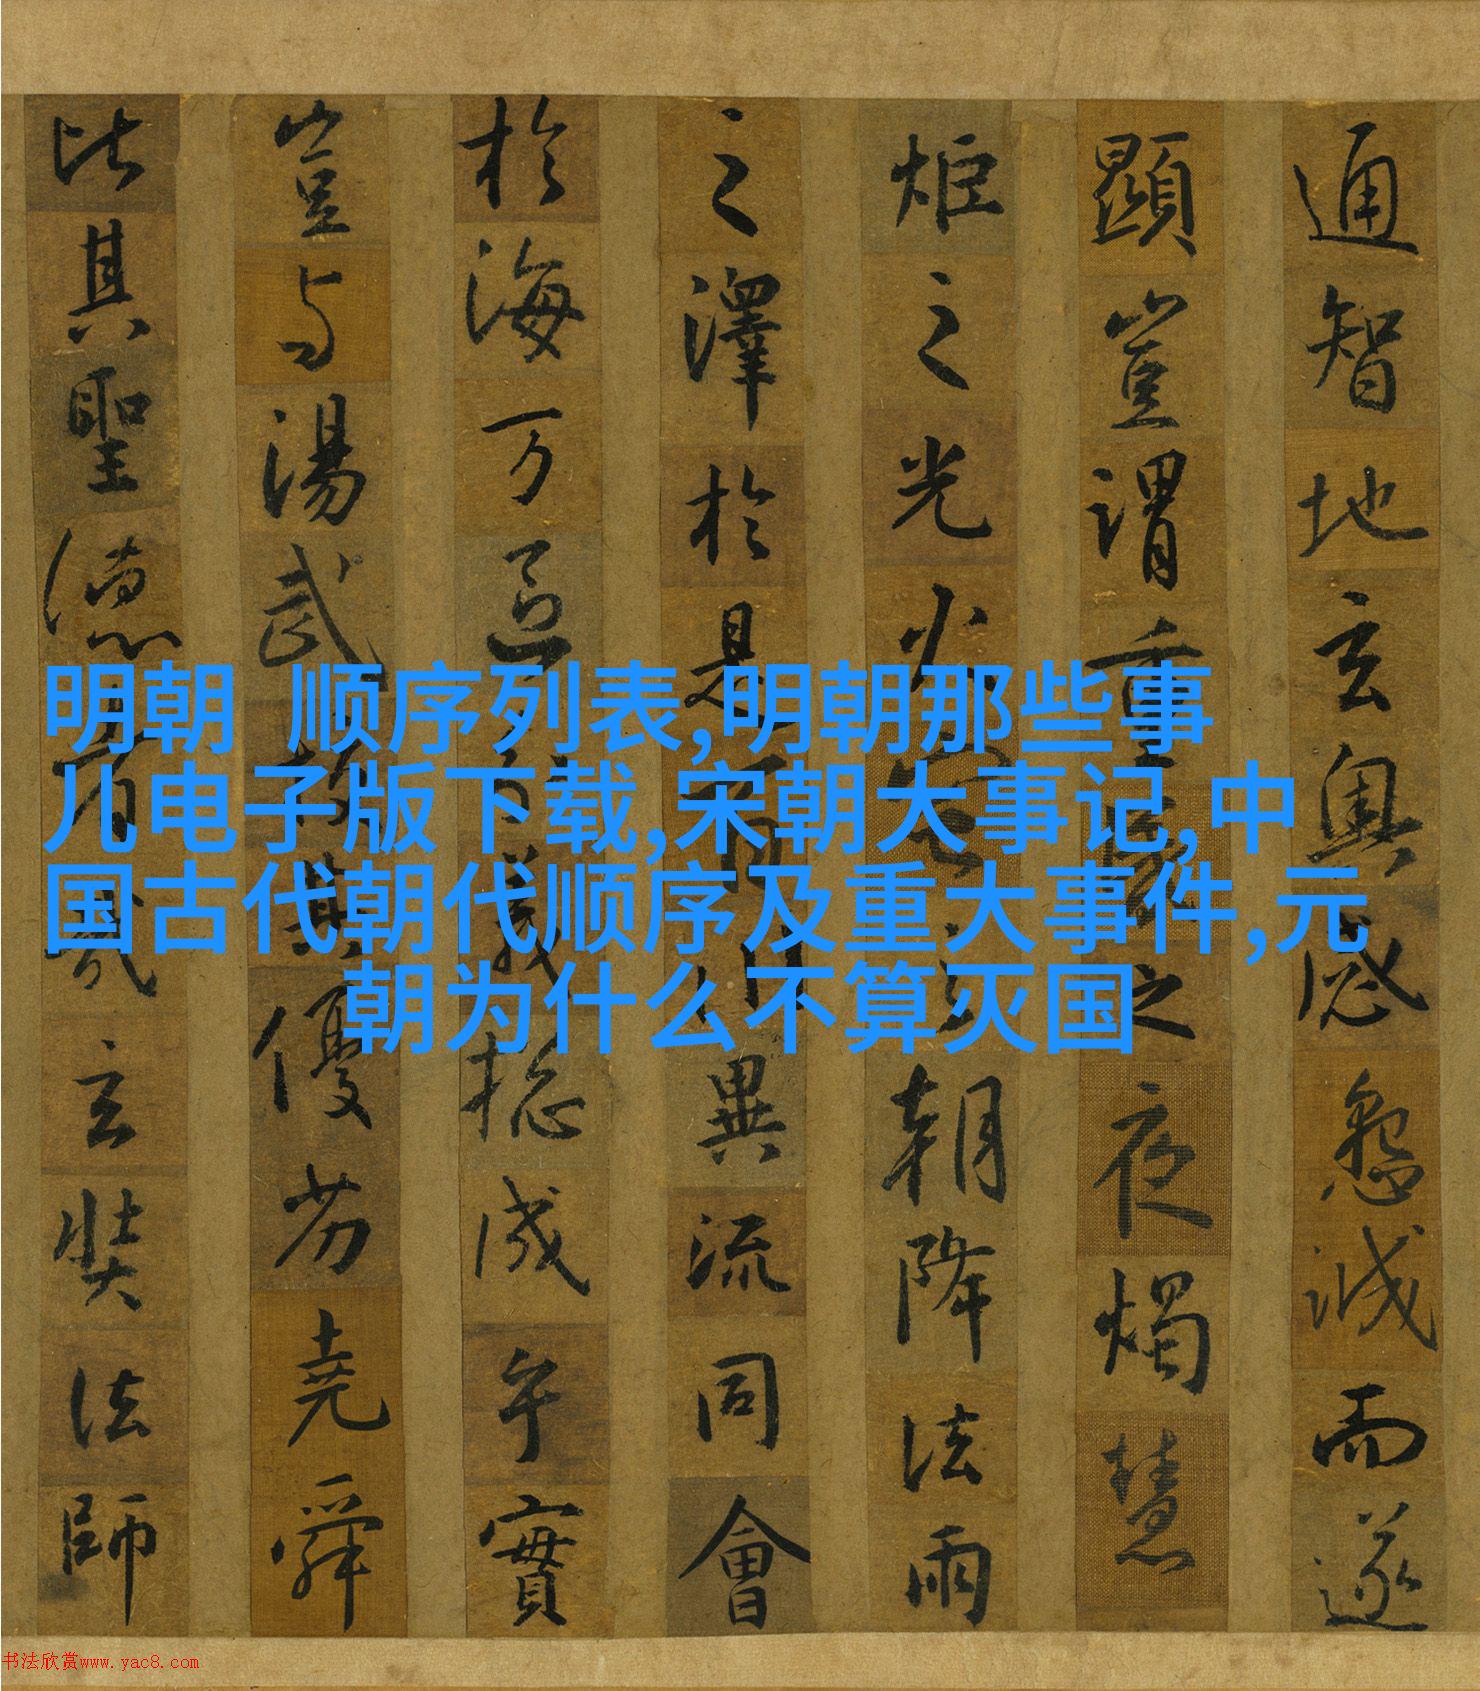 通智地玄奥感懇誠而遂
顯豈謂重昬之夜燭慧
炬之光火宅之朝降法雨
之澤於是百川異流同會
於海万區分義揔成乎實
豈与湯武挍其優劣堯舜
比其聖德者哉玄奘法師
明朝 顺序列表,明朝那些事
儿电子版下载,宋朝大事记,中
国古代朝代顺序及重大事件,元
朝为什么不算灭国
书法欣赏www.yac8.com